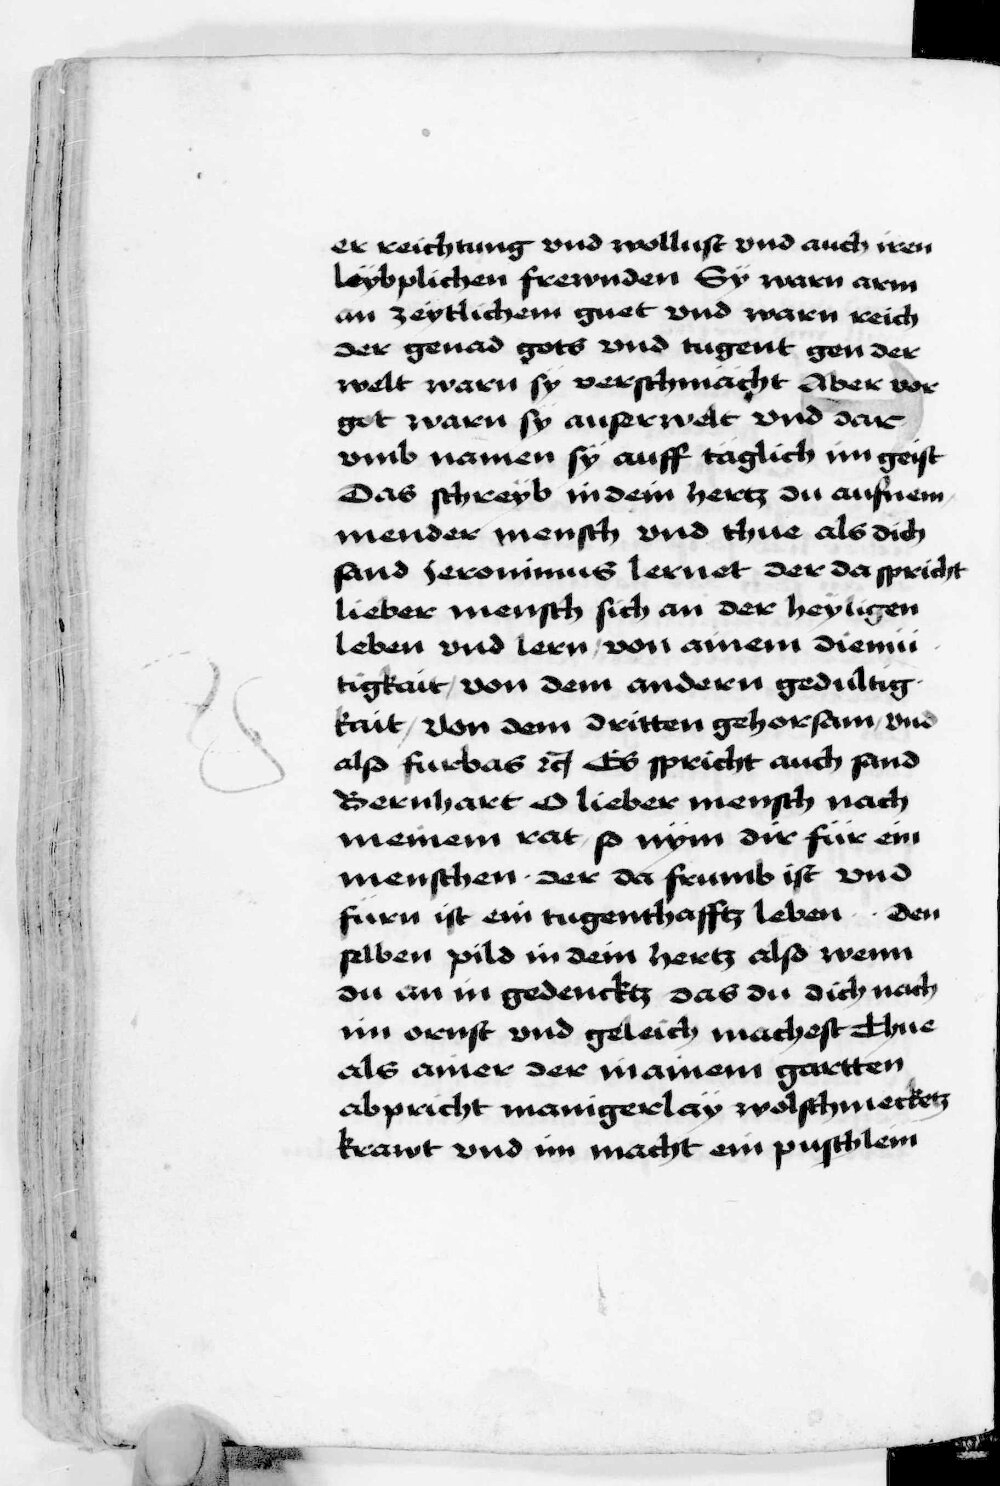 er reichtung vnd wollust vnd auch iren
leÿbplichen frewnden Sÿ warn arm
an zeÿtlichem guet vnd warn reich
der genad gots vnd tugent gen der
welt warn sÿ verschmächt Aber vor
got warn sÿ auserwelt vnd dar
vmb namen sÿ auff täglich im geist
Das schreÿb in dein hertz du aufnem
mender mensch vnd thue als dich
sand Jeronimus lernet der da spricht
lieber mensch sich an der heÿligen
leben vnd lern / von ainem diemü
tigkait / von dem andern gedultig
kait / Von dem dritten gehorsam / vnd
also furbas ꝛc̄ Es spricht auch sand
Bernhart O lieber mensch nach
meinem rat / so nÿm dir für ein
menschen · der da frumb ist vnd
fürn ist ein tugenthafftz leben · · den
selben pild in dein hertz also wenn
du an in gedencktz das du dich nach
im ornst vnd geleich machest Thue
als ainer der in ainem gartten
abpricht manigerlaÿ wolschmecketz
krawt vnd im macht ein puschlein